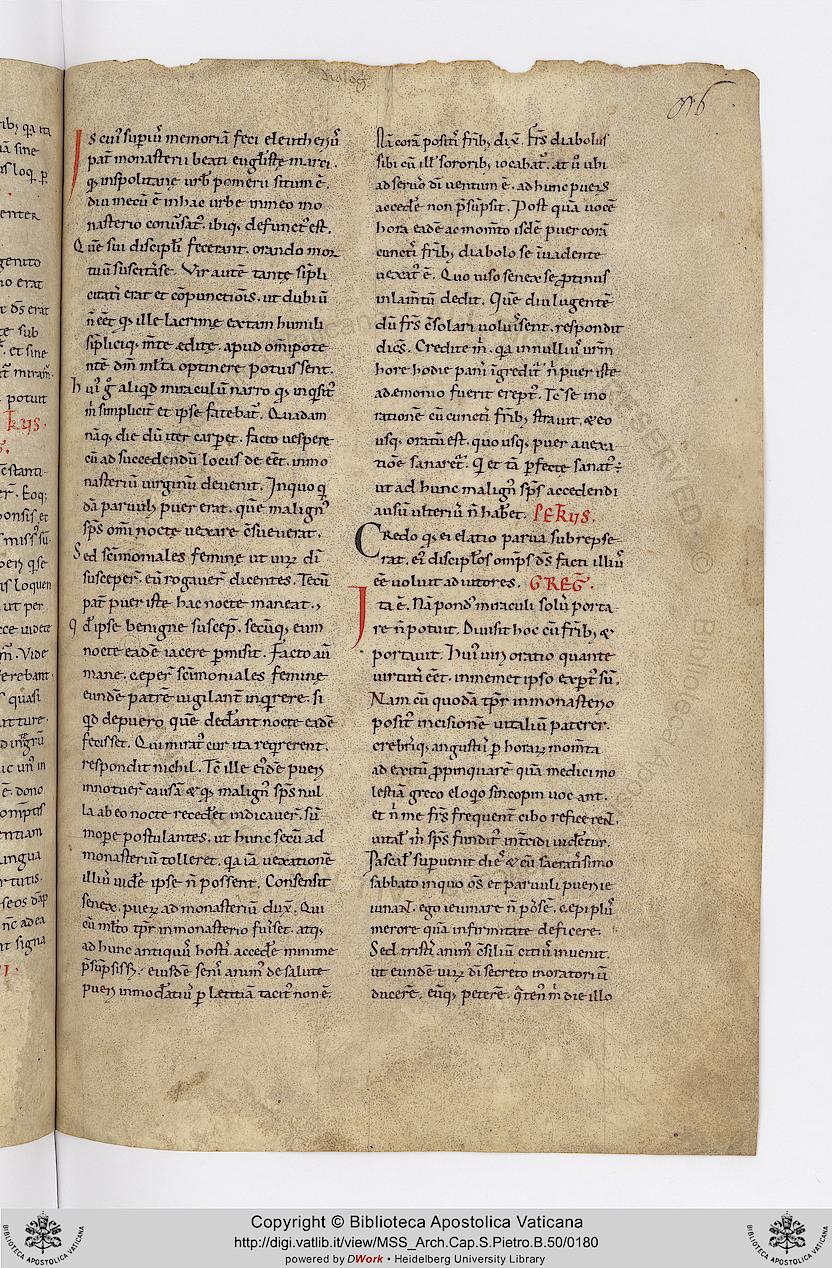 dialog
Is cui᷒ supi᷒ memoriā feci eleutheri᷒
pat̄ monasterii beati eug̅listę marci.
q̇ inspolitanę urb̄ pomerii situm ē.
diu mecū ē in hac urbe in meo mo
nasterio con̄uſat᷒. ibiq; defunct᷒ est.
Quē sui discipl̄i fecerant. orando mor
tuū suscitasse. Vir autē tantę sīpli
citatı̄ erat et cōpunctiōis. ut dubiū
n̄ eēt q̇ ille lacrimę ex tam humili
sīpliciq; m̄te editę. apud om̄ipote
ntē dn̄m ml̄ta optinere potuissent.
hui᷒ g̊ aliqd̄ miraculū narro q̇ inqisit᷒
m̄ simplicit̄ et ipse fatebat᷒. Quadam
nāq; die dū iter carpet. facto uespere
cū ad succedendū locus deeēt. in mo
nasteriū uirginū deuenit. In quo q
dā paruul᷒ puer erat. quē malign᷒
sp̄s om̄i nocte uexare cōsueuerat.
Sed sc̄imoniales feminę ut uiꝝ dī
susceper̄. eū rogauer̄ dicentes. Tecū
pat̄ puer iste hac nocte maneat.
qd̄ ipse benigne suscep̄. secūq; eum
nocte eadē iacere ꝑmisit. Facto aū
mane. ceper̄ sc̄imoniales feminę
eundē patrē uigilant̄ inqrere. si
qd̄ de puero quē ded̄ant nocte eadē
fecisset. Qui mirat᷒ cur ita reqrerent.
respondit nichil. Tc̄ ille ei᷒dē pueri
innotuer̄ causā &q; malign᷒ sp̄s nul
la ab eo nocte recedet indicauer̄. sū
mopere postulantes. ut hunc secū ad
monasteriū tolleret. qa iā uexationē
illi᷒ uidē ipse n̄ possent. Consensit
senex. pueꝝ ad monasteriū dux̄. Qui
cū ml̄to tp̄r in monasterio fuisset. atq;
ad hunc antiqu᷒ hosti᷒ accedē minime
p̄sūpsiss; eiusdē seni᷒ anim᷒ de salute
pueri inmod̄ati᷒ ꝑ lętitiā tacit᷒ non ē.
Nā corā positı̄ fr̄ib; dix̄. Fr̄s diabolus
sibi cū ill᷒ sororib; iocabat᷒. at ū ubi
ad seruū dī uentum ē. ad hunc pueꝝ
accedē non p̄supsit. Post quā uocē
hora eadē ac mom̄to isdē puer corā
cunctı̄ fr̄ib; diabolo se īuadente
uexat᷒ ē. Quo uiso senex se ꝓtinus
in lam̄tū dedit. Quē diu lugentē
dū fr̄s cōsolari uoluissent. respondit
dicēs. Credite m̄. qa in nulli᷒ ur̄m
hore hodie panı̄ īgredit᷒ n̄ puer iste
a demonio fuerit erept᷒. Tc̄ se in o
rationē cū cunctı̄ fr̄ib; strauit. & eo
usq; oratū est. quo usq; puer a uexa
tiōe sanaret᷒. Qi et tā ꝑfecte sanat᷒:
ut ad hunc malign᷒ sp̄s accedendi
ausū ulteri᷒ n̄ habet. PETRUS.
Credo q̇ ei elatio parua subrepse
rat. ei᷒ disciplōs om̄ps dō̄s facti illi᷒
eē uoluit adiutores. GREG̅.
Ita ē. Nā pond᷒ miraculi sol᷒ porta
re n̄ potuit. Diuisit hoc cū fr̄ib; &
portauit. Hui᷒ uiri oratio quante
uirtutı̄ eēt. in memet ipso expert᷒ sū.
Nam cū quodā tp̄r in monasterio
posit᷒ incisionē uitaliū paterer.
crebrı̄q; angustiı̄ ꝑ horaꝝ mom̄ta
ad exitū ꝓpinquarē quā medici mo
lestiā greco eloqo sincopin uocant.
et n̄ me fr̄s frequent̄ cibo reficeren̄t.
uital᷒ m̄ sp̄s fundit᷒ int̄cidi uidet̄ur.
Pascal᷒ supuenit die᷒ & cū sacratissimo
sabbato in quo ōs et paruuli pueri ie
iunan̄t. ego ieiunare n̄ possē. cepi pl᷒
merore quā infirmitate deficere.
Sed tristı̄ anim᷒ cōsiliū citi᷒ inuenit.
ut eundē uiꝝ dī secreto in oratoriū
ducerē. eūq; peterē. q̄ten᷒ m̄ die illo
Copyright © Biblioteca Apostolica Vaticana
http://digi.vatlib.it/view/MSS_Arch.Cap.S.Pietro.B.50/0180
powered by DWork • Heidelberg University Library